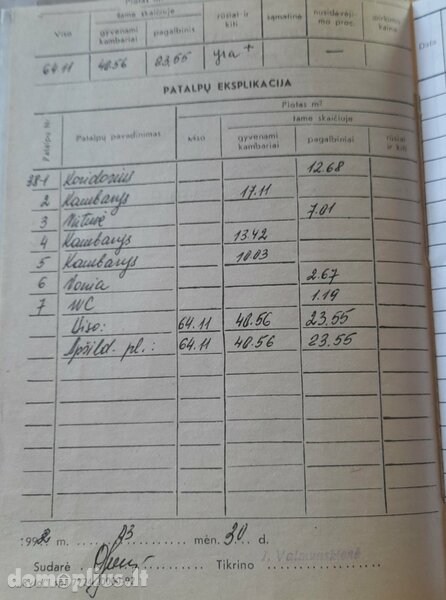 Plotas m²
tame skaičiuje
Viso gyvenami kambariai pagalbinis rūsiai ir kiti sąmatinė nusidėvėjimo proc.
64.11 40.56 23.55 yra + —
PATALPŲ EKSPLIKACIJA
Plotas m²
tame skaičiuje
Patalpų Nr. Patalpų pavadinimas viso gyvenami kambariai pagalbiniai rūsiai ir kiti
38-1 Koridorius 12.68
2 Kambarys 17.11
3 Virtuvė 7.01
4 Kambarys 13.42
5 Kambarys 10.03
6 Vonia 2.67
7 WC 1.19
Viso: 64.11 40.56 23.55
Apšild. pl.: 64.11 40.56 23.55
1992 m. 03 mėn. 30 d.
Sudarė Tikrino
domoplius.lt
Data